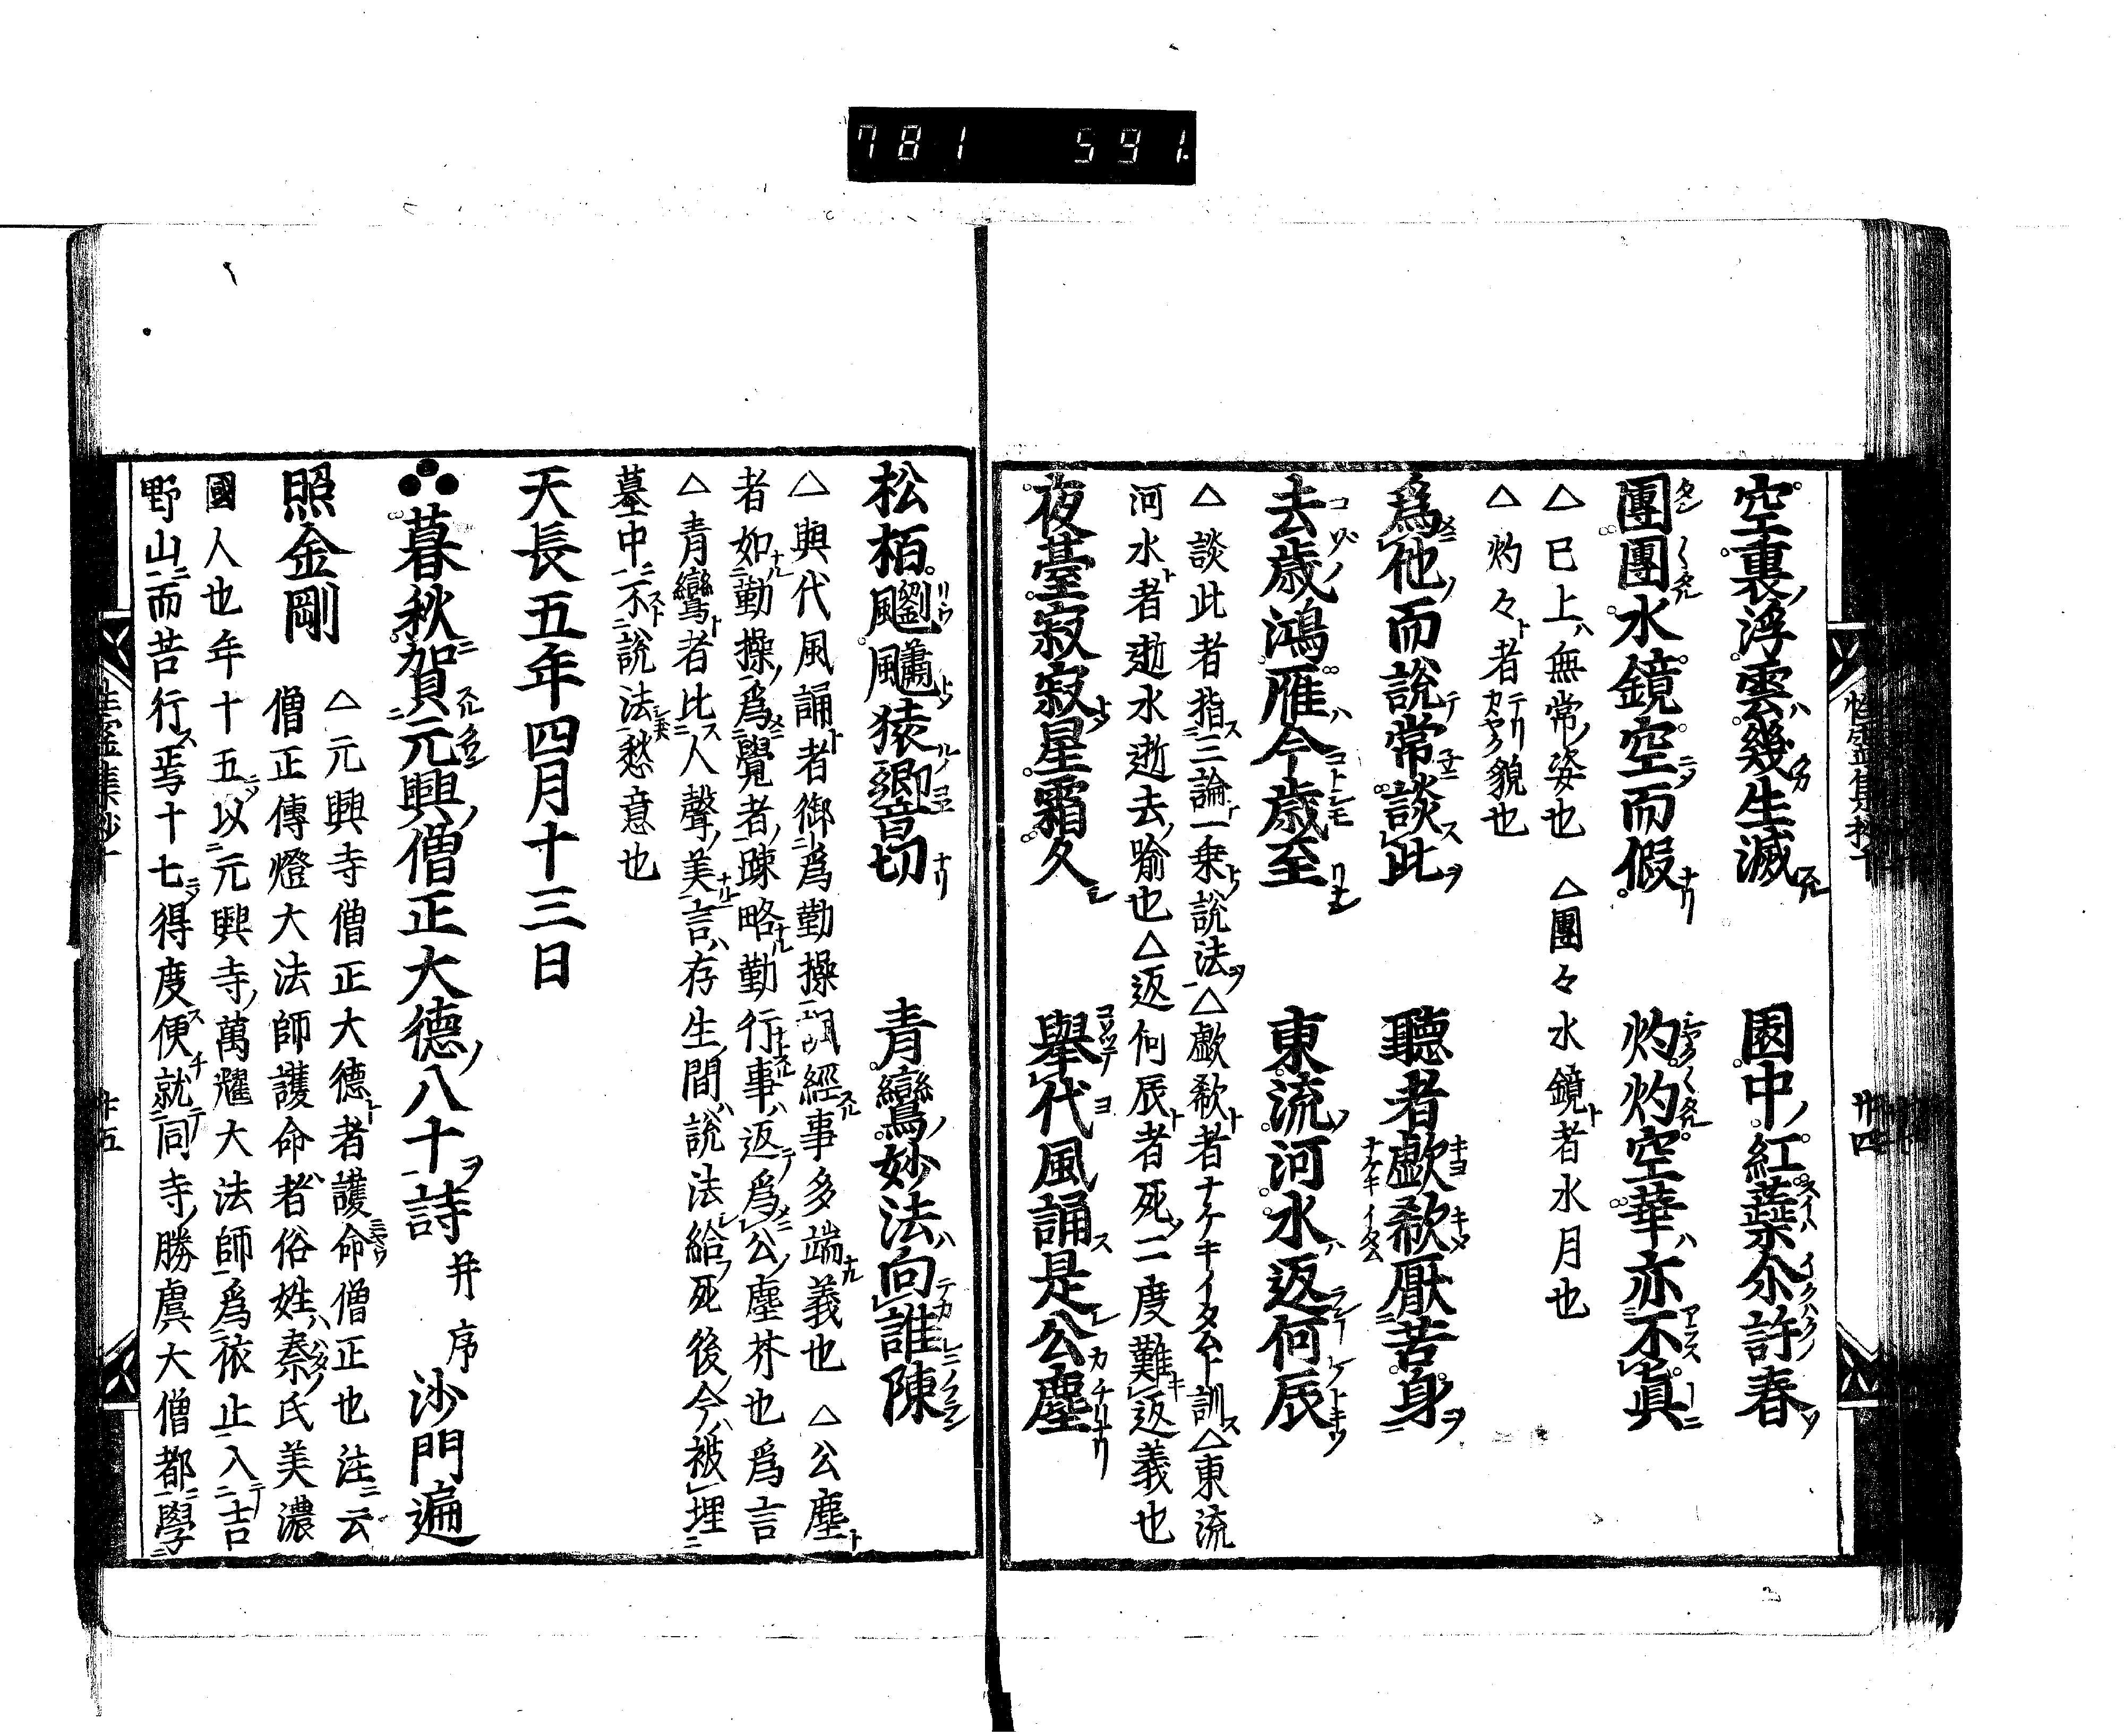 781 591.
空裏浮雲幾生滅 園中紅蘂尒許春
團團水鏡空而假 灼灼空華亦不眞
△巳上無常姿也 △團々水鏡者水月也
△灼々者カヤク貌也
爲他而說常談此 聽者歔欷厭苦身
去歳鴻雁今歳至 東流河水返何辰
△談此者指三論一乗說法△歔欷者ナケキイタムト訓△東流
河水者逝水逝去喻也△返何辰者死二度難返義也
夜臺寂寂星霜久 舉代風誦是公塵
松栢飀飀猿響切 青鸞妙法向誰陳
△與代風誦者御爲勤操誦經事多端義也 △公塵
者如勤操爲覺者踈略勤行事返爲公塵芥也爲言
△青鸞者比人聲美言存生間說法給死後今被埋
墓中不說法愁意也
天長五年四月十三日
暮秋賀元興僧正大德八十詩并序 沙門遍
照金剛
△元興寺僧正大德者護命僧正也注云
僧正傳燈大法師護命者俗姓秦氏美濃
國人也年十五以元興寺萬耀大法師爲依止入吉
野山而苦行焉十七得度便就同寺勝虞大僧都學